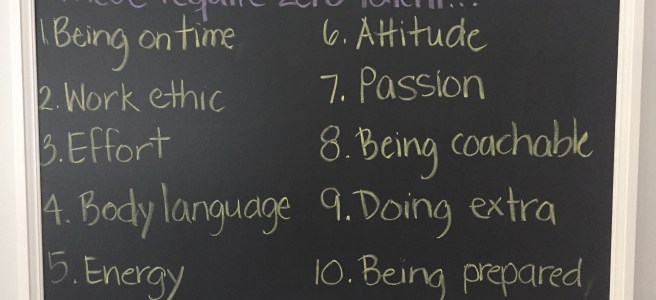 These require zero talent...
1. Being on time
2. Work ethic
3. Effort
4. Body language
5. Energy
6. Attitude
7. Passion
8. Being coachable
9. Doing extra
10. Being prepared